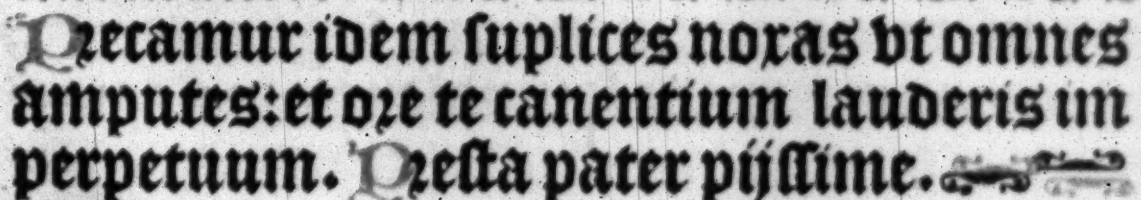 Precamur idem suplices noxas vt omnes
amputes: et ore te canentium lauderis im
perpetuum. Presta pater pijssime.